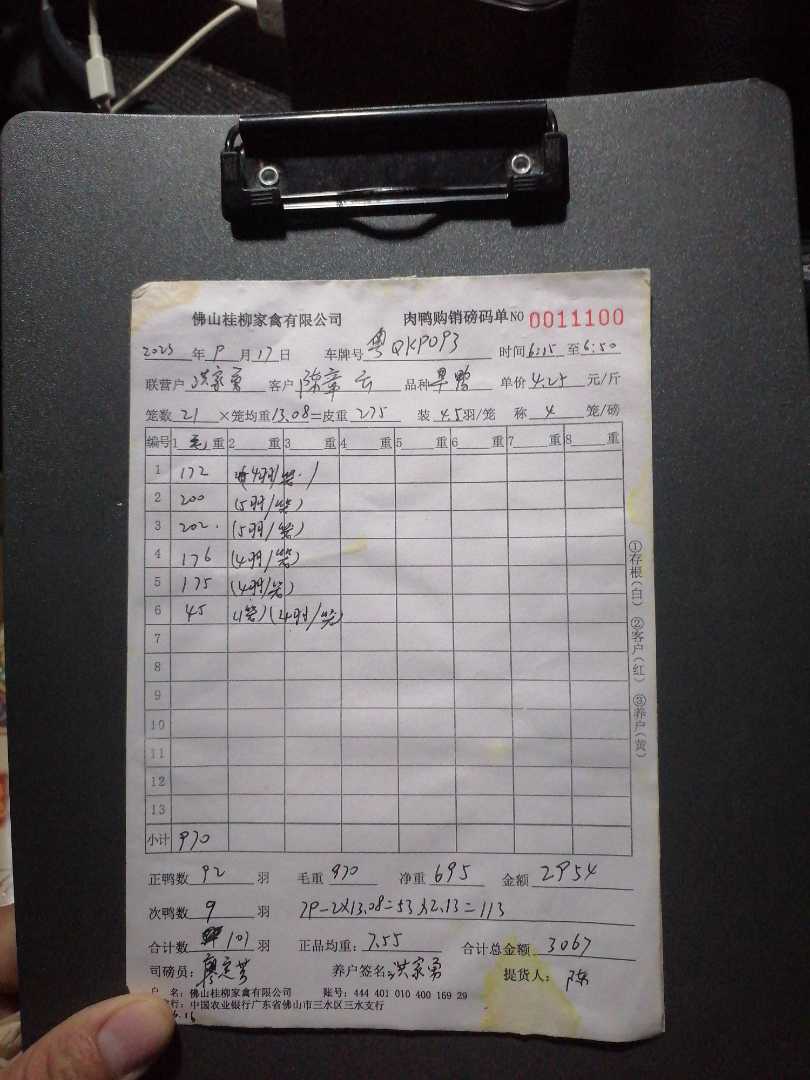 佛山桂柳家禽有限公司 肉鸭购销磅码单 NO 0011100
2023 年 9 月 17 日 车牌号 粤QKP093 时间 6:15 至 6:50
联营户 洪家勇 客户 陈章云 品种 单价 4.25 元/斤
笼数 21 ×笼均重 13.08 =皮重 275 装 4.5 羽/笼 称 4 笼/磅
编号 1 毛 重 2 重 3 重 4 重 5 重 6 重 7 重 8 重
1 172 (4羽/笼)
2 200 (5羽/笼)
3 202 (5羽/笼)
4 176 (4羽/笼)
5 175 (4羽/笼)
6 45 (1笼)(4羽/笼)
7
8
9
10
11
12
13
小计 970
正鸭数 92 羽 毛重 970 净重 695 金额 2954
次鸭数 9 羽 79-2×13.08=53×2.13=113
合计数 101 羽 正品均重: 7.55 合计总金额 3067
司磅员: 养户签名: 洪家勇 提货人: 陈
户 名: 佛山桂柳家禽有限公司 账号: 444 401 010 400 169 29
行: 中国农业银行广东省佛山市三水区三水支行
①存根(白) ②客户(红) ③养户(黄)